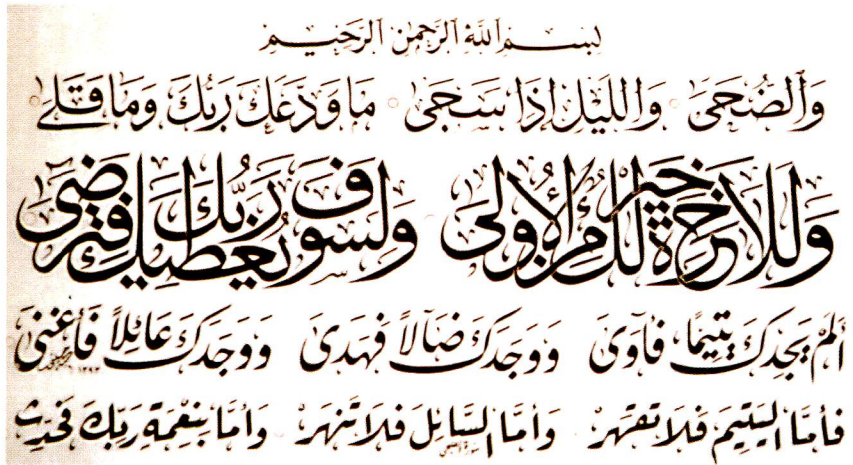 بِسْمِ اللَّهِ الرَّحْمَنِ الرَّحِيمِ
وَالضُّحَى وَاللَّيْلِ إِذَا سَجَى مَا وَدَّعَكَ رَبُّكَ وَمَا قَلَى
وَلَلْآخِرَةُ خَيْرٌ لَكَ مِنَ الْأُولَى وَلَسَوْفَ يُعْطِيكَ رَبُّكَ فَتَرْضَى
أَلَمْ يَجِدْكَ يَتِيمًا فَآوَى وَوَجَدَكَ ضَالًّا فَهَدَى وَوَجَدَكَ عَائِلًا فَأَغْنَى
فَأَمَّا الْيَتِيمَ فَلَا تَقْهَرْ وَأَمَّا السَّائِلَ فَلَا تَنْهَرْ وَأَمَّا بِنِعْمَةِ رَبِّكَ فَحَدِّثْ